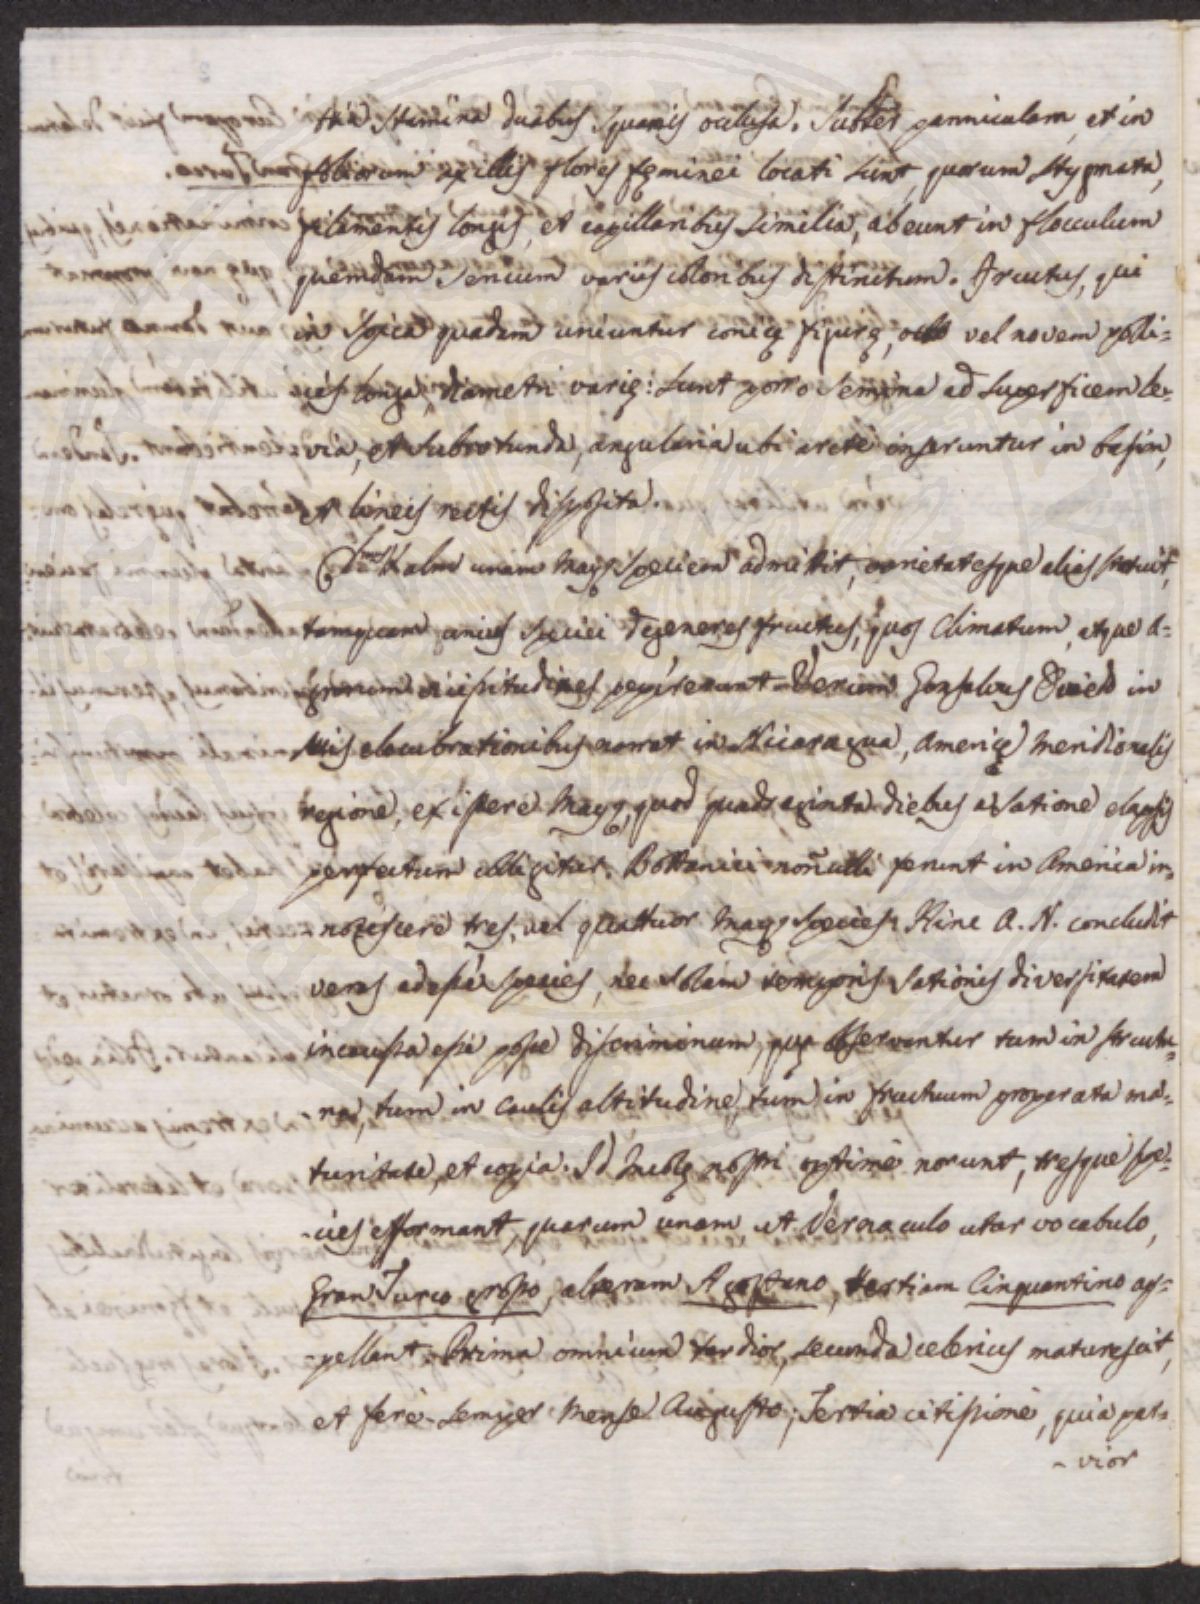 tria stamina duabus squamis occlusa. Subter panniculam, et in
foliorum axillis flores fęminei locati sunt, quorum stygmata,
filamentis longis, et capillaribus similia, abeunt in flocculum
quemdam sericum variis coloribus distinctum. Fructus, qui
in spica quadam uniuntur conicę figurę, octo vel novem polli-
ces longa, diametri varię: sunt porro semina ad superficiem le-
via, et subrotunda, angularia ubi arctè inseruntur in basim,
et lineis rectis disposita.
Clmus Kalm unam Mays speciem admittit, varietatesque alias statuit,
tamquam unius speciei degeneres fructus, quos climatum, atque a-
grorum vicissitudines pepererunt. Verum Gonsalvus Oviedo in
suis elucubrationibus narrat in Nicaragua, Americę Meridionalis
regione, existere Mays, quod quadraginta diebus a satione elapsis
perfectum colligitur. Bottanici nonulli ferunt in America in-
notescere tres, vel quattuor Mays species. Hinc A. N. concludit
veras adesse species, nec solam temporis sationis diversitatem
in caussa esse posse discriminum, quę observantur tum in structu-
ra, tum in caulis altitudine, tum in fructuum properata ma-
turitate, et copia. Id Incolę nostri optimè norunt, tresque spe-
cies efformant, quarum unam ut Vernaculo utar vocabulo,
Gran Turco grosso, alteram Agostano, tertiam Cinquantino ap-
pellant. Prima omnium tardior, secunda celerius maturescit,
et ferè semper Mense Augusto; Tertia citissimè, quia par-
- vior